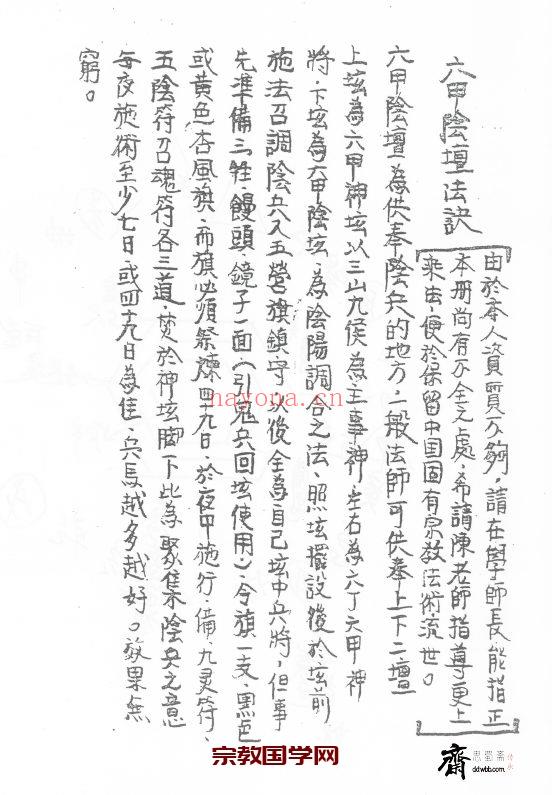 六甲陰壇法訣
由於本人資質不夠，請在學師長能指正
本册尚有不全之處，希請陳老師指導更上
乘法，便於保留中国固有宗教法術流世。
六甲陰壇為供奉陰兵的地方，一般法師可供奉上下二壇
上垓為六甲神垓以三山九侯為主事神，左右為六丁六甲神
將，下垓為六甲陰垓，為陰陽調合之法，照垓擺設後於垓前
施法召調陰兵入五營旗鎮守，以後全為自己垓中兵將，但事
先準備三牲，饅頭，鏡子一面（引鬼兵回垓使用），令旗一支，黑色
或黄色杏風旗，而旗必須祭煉四十九日，於夜中施行，備，九灵符、
五陰符召魂符各三道，焚於神垓脚下比為聚集陰兵之意
每夜施術至少七日，或四十九日為佳，兵馬越多越好。效果無
窮。
hayona.cn
宗教国学网
齋
思蜀斋
ddwbb.com